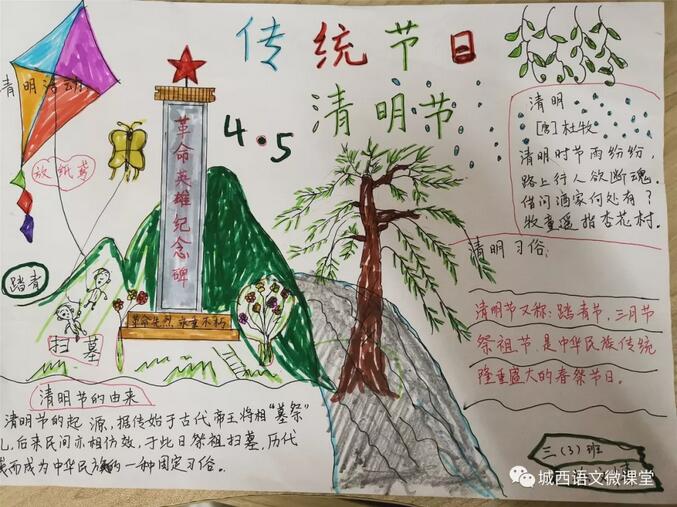 传统节日
清明节
4.5
清明活动
放纸鸢
踏青
扫墓
革命英雄纪念碑
清明
[唐]杜牧
清明时节雨纷纷，
路上行人欲断魂。
借问酒家何处有？
牧童遥指杏花村。
清明习俗：
清明节又称：踏青节，三月节
祭祖节，是中华民族传统
隆重盛大的春祭节日。
清明节的由来
清明节的起源，据传始于古代帝王将相“墓祭”
礼，后来民间亦相仿效，于此日祭祖扫墓，历代
而成为中华民族的一种固定习俗。
三（3）班
城西语文微课堂